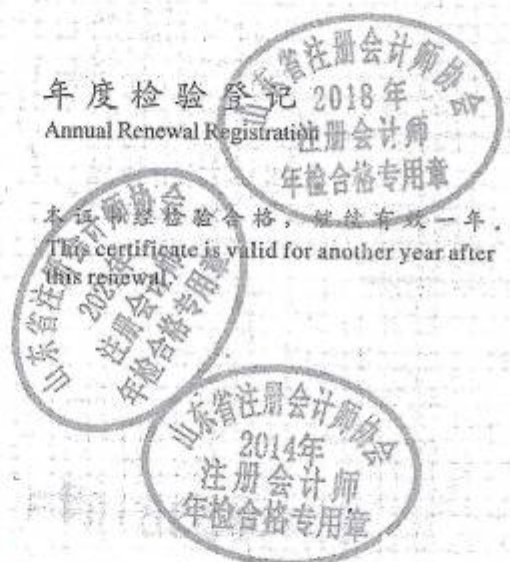 年度检验登记
Annual Renewal Registration
本证书经检验合格，继续有效一年．
This certificate is valid for another year after
this renewal.
山东省注册会计师协会
2018年
注册会计师
年检合格专用章
山东省注册会计师协会
注册会计师
年检合格专用章
山东省注册会计师协会
2014年
注册会计师
年检合格专用章